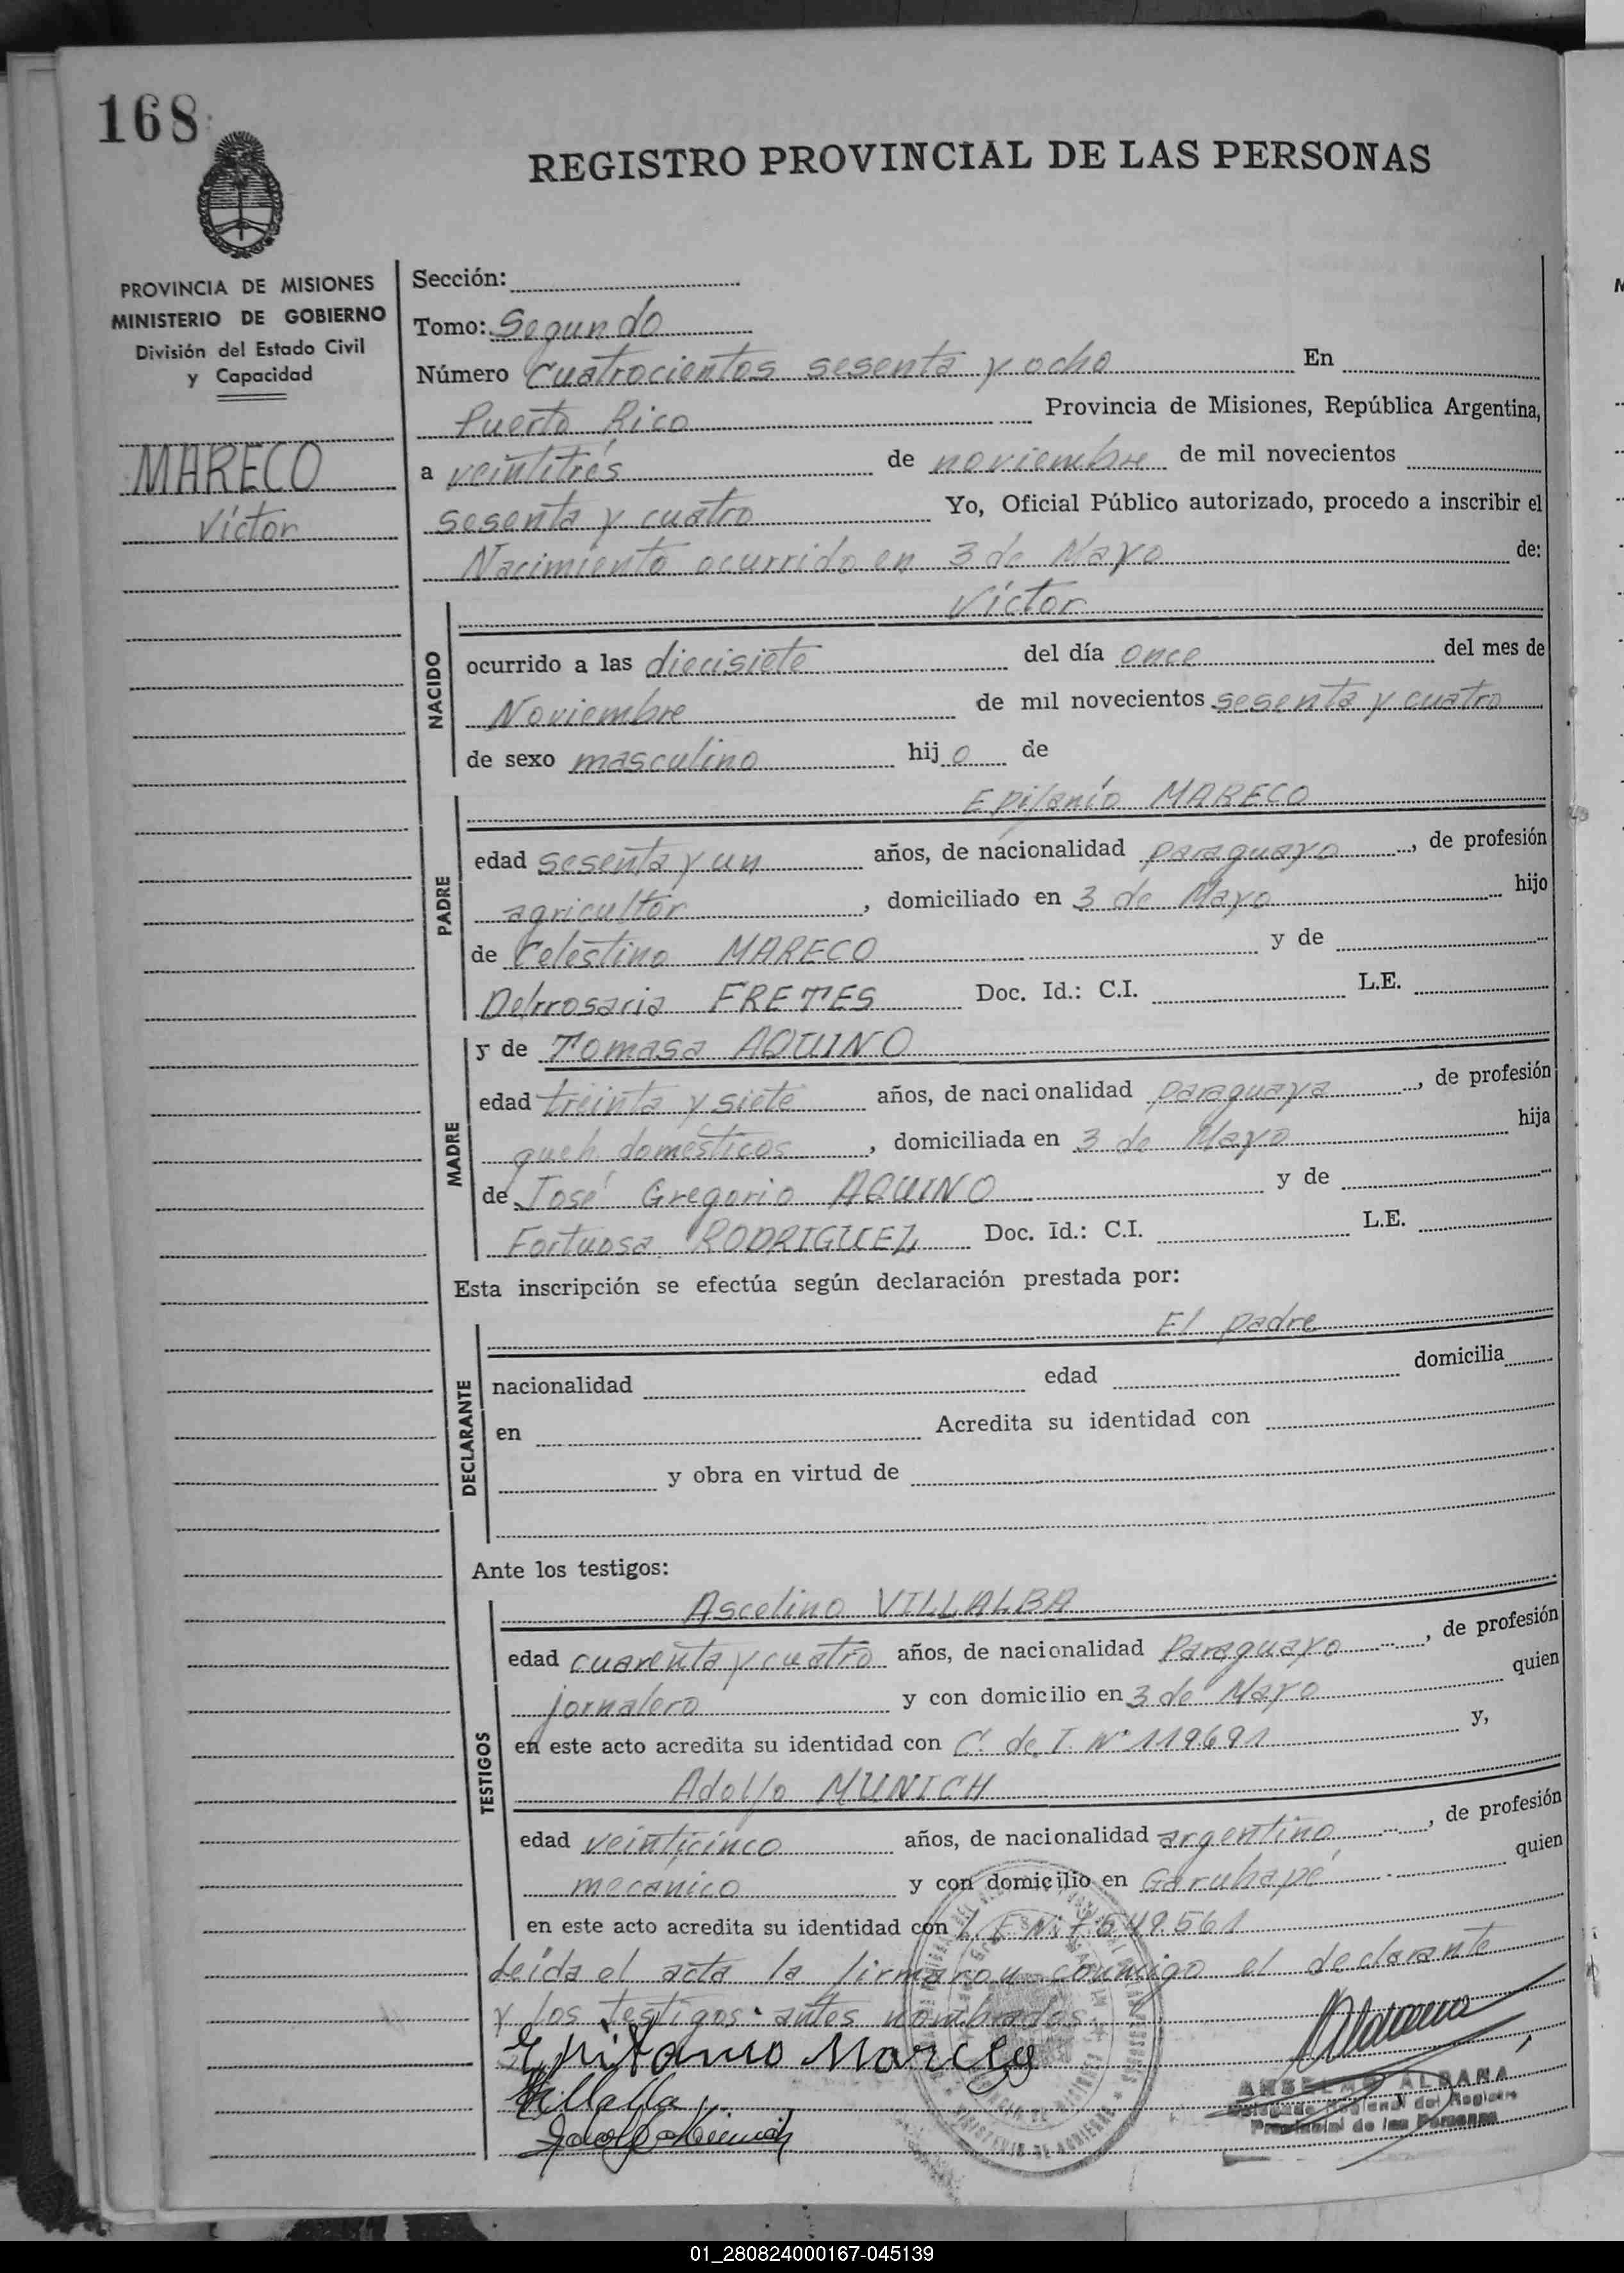 168
REGISTRO PROVINCIAL DE LAS PERSONAS
PROVINCIA DE MISIONES
MINISTERIO DE GOBIERNO
División del Estado Civil
y Capacidad
MARECO
Víctor
Sección:
Tomo: Segundo
Número Cuatrocientos sesenta y ocho En
Puerto Rico Provincia de Misiones, República Argentina,
a veintitrés de noviembre de mil novecientos
sesenta y cuatro Yo, Oficial Público autorizado, procedo a inscribir el
Nacimiento ocurrido en 3 de Mayo de:
NACIDO
Víctor
ocurrido a las diecisiete del día once del mes de
Noviembre de mil novecientos sesenta y cuatro
de sexo masculino hijo de
PADRE
Epifanio MARECO
edad sesenta y un años, de nacionalidad paraguayo, de profesión
agricultor, domiciliado en 3 de Mayo hijo
de Celestino MARECO y de
Delrrosaria FRETES Doc. Id.: C.I. L.E.
MADRE
y de Tomasa AQUINO
edad treinta y siete años, de nacionalidad paraguaya, de profesión
queh. domésticos, domiciliada en 3 de Mayo hija
de José Gregorio AQUINO y de
Fortuosa RODRIGUEZ Doc. Id.: C.I. L.E.
Esta inscripción se efectúa según declaración prestada por:
DECLARANTE
El padre
nacionalidad edad domicilia
en Acredita su identidad con
y obra en virtud de
Ante los testigos:
TESTIGOS
Ascelino VILLALBA
edad cuarenta y cuatro años, de nacionalidad Paraguayo, de profesión
jornalero y con domicilio en 3 de Mayo quien
en este acto acredita su identidad con C. de I. N° 119691 y,
Adolfo MUNICH
edad veinticinco años, de nacionalidad argentino, de profesión
mecánico y con domicilio en Garuhapé quien
en este acto acredita su identidad con L.E. N° 7.649.561
Leída el acta la firmaron conmigo el declarante
y los testigos antes nombrados.
Epifanio Mareco
Villalba
Adolfo Munich
ANSELMO ALDANA
Delegado Regional del Registro
Provincial de las Personas
01_280824000167-045139